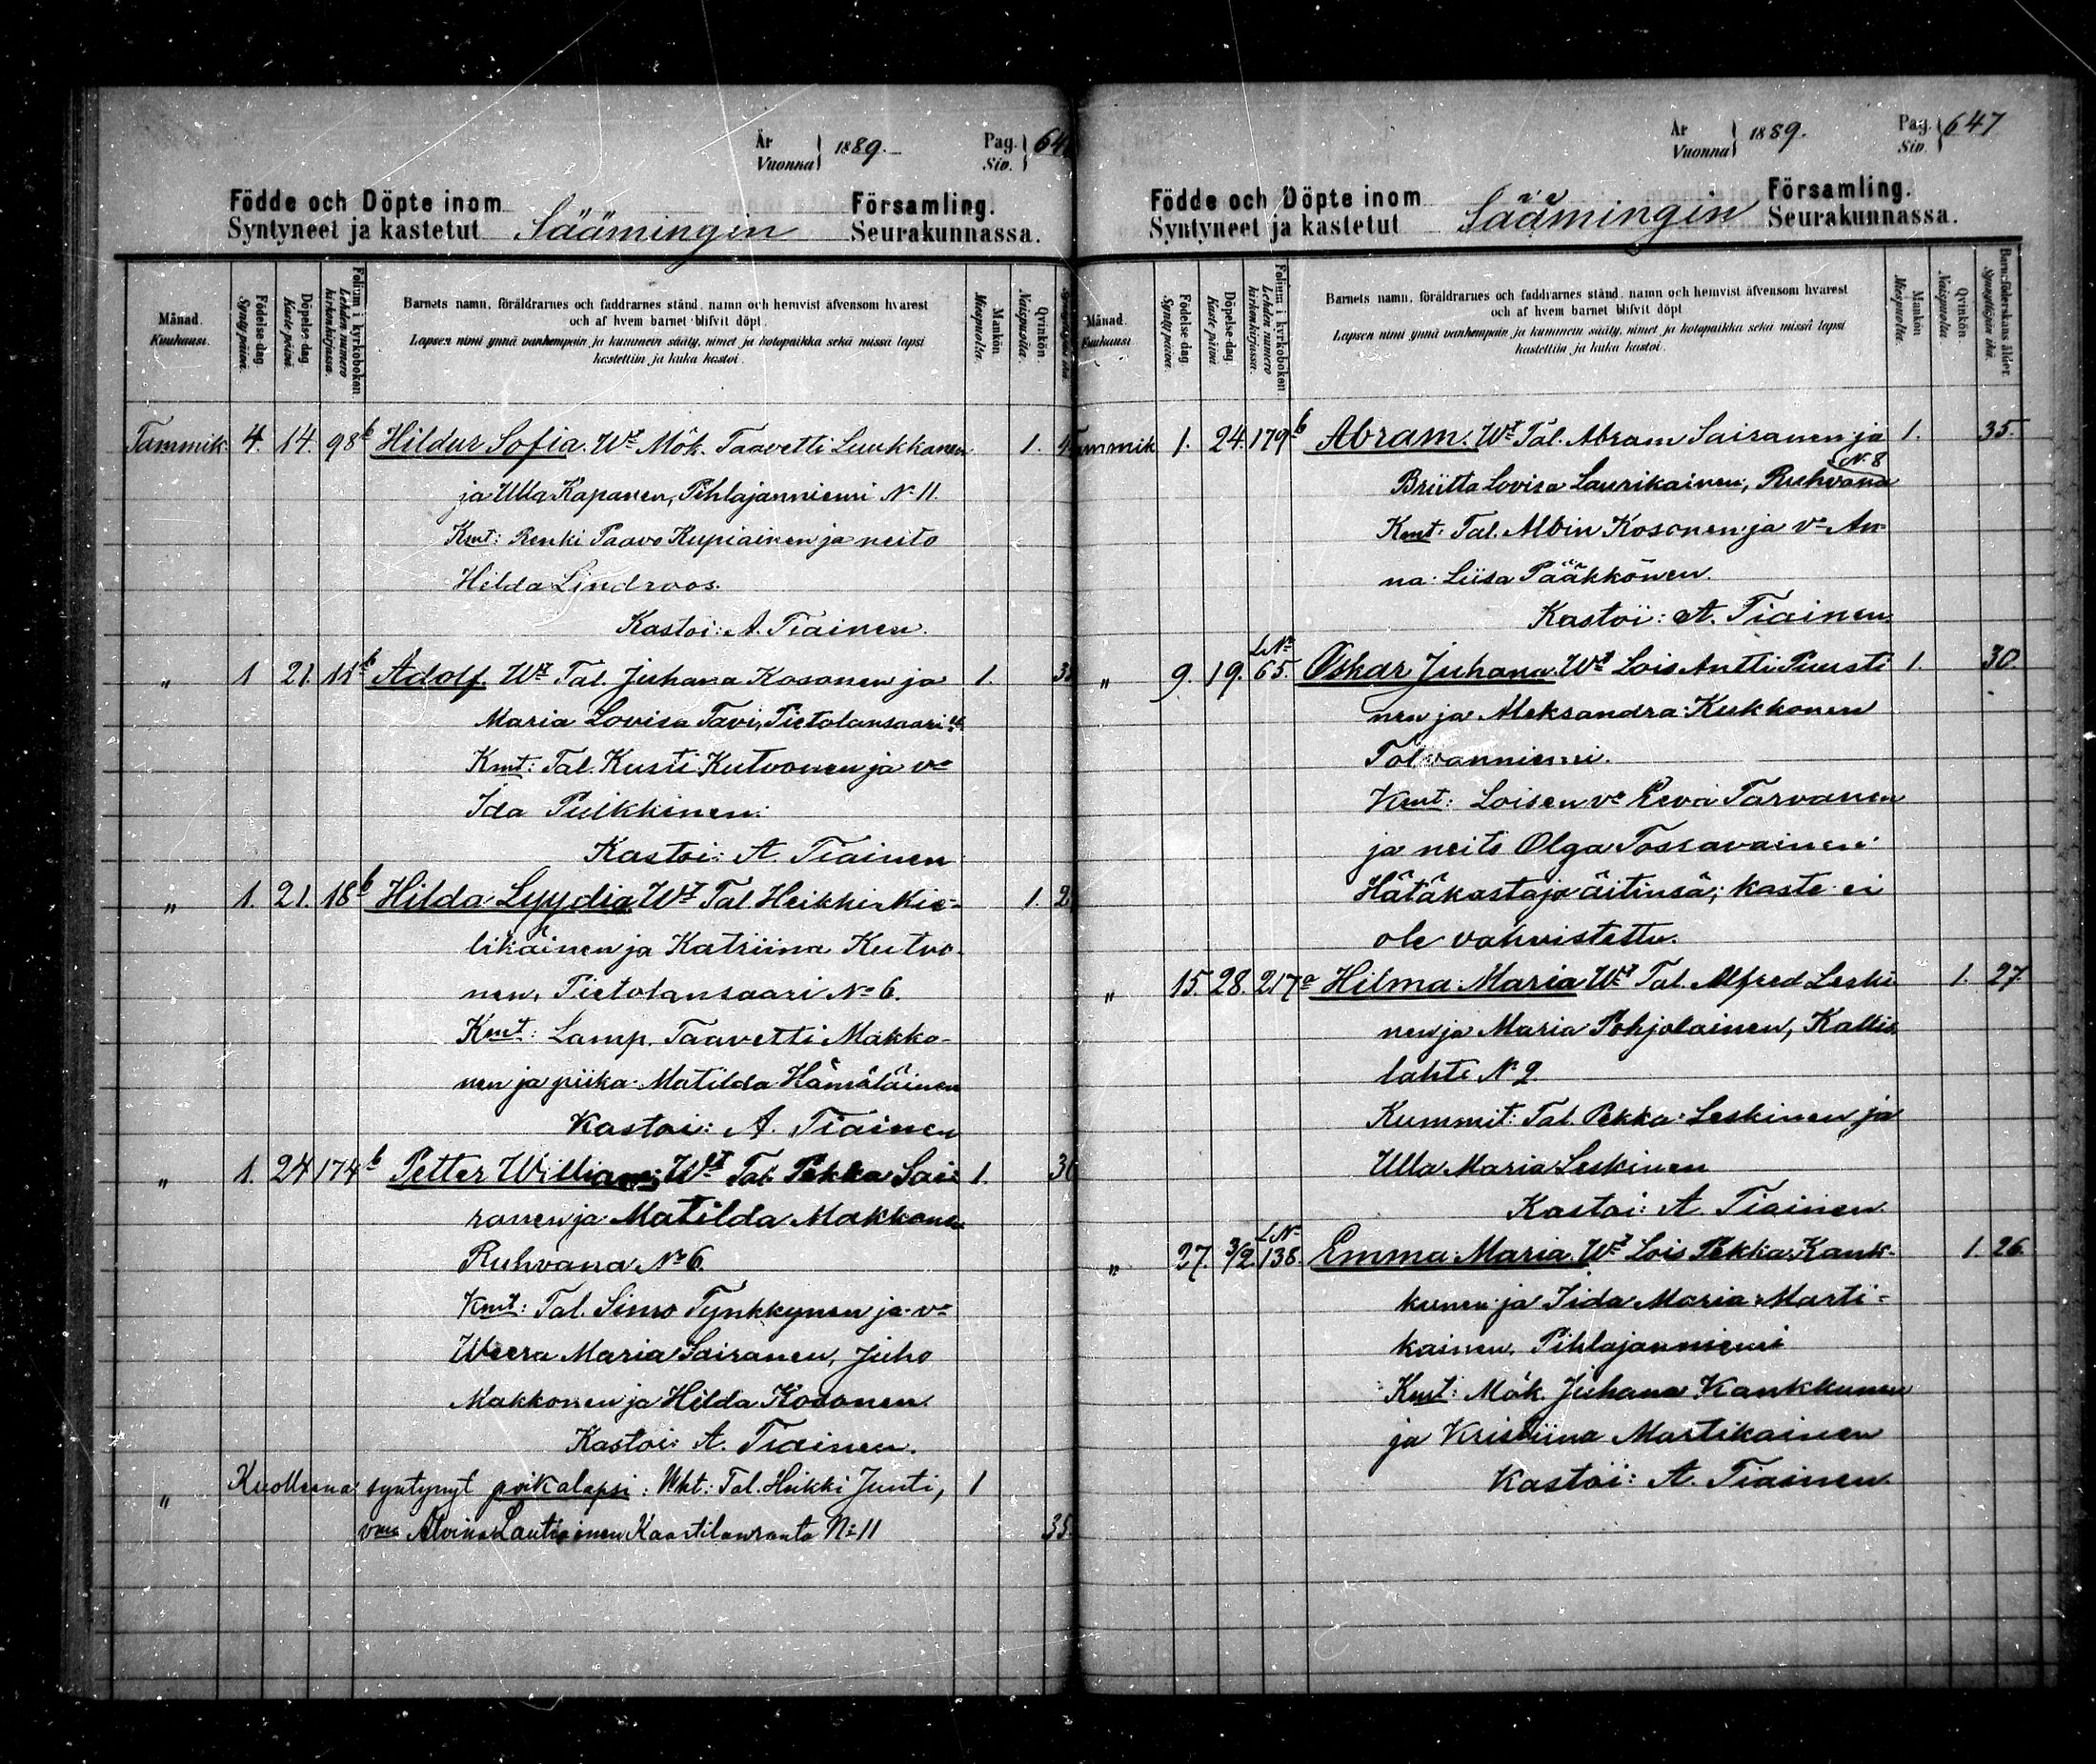 År Vuonna 1889. Pag. Siv. 64
Födde och Döpte inom Församling.
Syntyneet ja kastetut Säämingin Seurakunnassa.
Månad. Kuukausi.
Födelse-dag. Synty päivä.
Döpelse-dag. Kaste päivä.
Folium i kyrkoboken. Lehden numero kirkonkirjassa.
Barnets namn, föräldrarnes och faddrarnes stånd, namn och hemvist äfvensom hvarest
och af hvem barnet blifvit döpt.
Lapsen nimi ynnä vanhempain ja kummein sääty, nimet ja kotopaikka sekä missä lapsi
kastettiin ja kuka kastoi.
Mankön. Miespuolta.
Qvinkön. Naispuolta.
Tammik. 4. 14. 98 b Hildur Sofia. Wt Mök. Taavetti Luukkanen 1.
ja Ulla Kapanen, Pihlajanniemi No 11.
Kmt: Renki Paavo Kupiainen ja neito
Hilda Lindroos.
Kastoi: A. Tiainen.
" 1 21. 11 b Adolf. Wt Tal. Juhana Kosonen ja 1.
Maria Lovisa Tavi, Pietolansaari
Kmt: Tal. Kusti Kutvonen ja vo
Ida Pulkkinen.
Kastoi: A. Tiainen
" 1. 21. 18 b Hilda Lyydia Wt Tal. Heikki Kie- 1.
likäinen ja Katriina Kutvo-
nen, Pietolansaari No 6.
Kmt: Lamp. Taavetti Makko-
nen ja piika Matilda Hämäläinen
Kastoi: A. Tiainen
" 1. 24 174 b Petter William: Wt Tal. Pekka Sai- 1.
ranen ja Matilda Makkonen
Ruhvana No 6.
Kmt: Tal. Simo Tynkkynen ja vo
Weera Maria Sairanen, Juho
Makkonen ja Hilda Kosonen.
Kastoi: A. Tiainen.
" Kuolleena syntynyt poikalapsi: Wht: Tal. Heikki Junti, 1
Alvina Lautiainen Kaartilanranta No 11 35.
År Vuonna 1889. Pag. Siv. 647
Födde och Döpte inom Församling.
Syntyneet ja kastetut Säämingin Seurakunnassa.
Månad. Kuukausi.
Födelse-dag. Synty päivä.
Döpelse-dag. Kaste päivä.
Folium i kyrkoboken. Lehden numero kirkonkirjassa.
Barnets namn, föräldrarnes och faddrarnes stånd, namn och hemvist äfvensom hvarest
och af hvem barnet blifvit döpt
Lapsen nimi ynnä vanhempain ja kummein sääty, nimet ja kotopaikka sekä missä lapsi
kastettiin ja kuka kastoi.
Mankön. Miespuolta.
Qvinkön. Naispuolta.
Barnaföderskans ålder. Synnyttäjän ikä.
Tammik 1. 24. 179 b Abram. Wt Tal. Abram Sairanen ja 1. 35.
Briitta Lovisa Laurikainen, Ruhvana No 8
Kmt: Tal. Albin Kosonen ja vo An-
na Liisa Pääkkönen.
Kastoi: A. Tiainen.
" 9. 19. LNo 65. Oskar Juhana. Wt Lois Antti Puusti 1. 30
nen ja Aleksandra Kukkonen
Tolvanniemi.
Kmt: Loisen vo Eeva Tarvanen
ja neito Olga Tossavainen.
Hätäkastaja äitinsä; kaste ei
ole vahvistettu.
" 15. 28. 217 a Hilma Maria Wt Tal. Alfred Leski- 1. 27.
nen ja Maria Pohjolainen, Kallis
lahti No 2.
Kummit: Tal. Pekka Leskinen ja
Ulla Maria Leskinen
Kastoi: A. Tiainen
" 27. 3/2. LNo 138. Emma Maria. Wt Lois Pekka Kank- 1. 26.
kunen ja Iida Maria Marti-
kainen, Pihlajanniemi
Kmt: Mök. Juhana Kankkunen
ja Kristiina Martikainen
Kastoi: A. Tiainen.